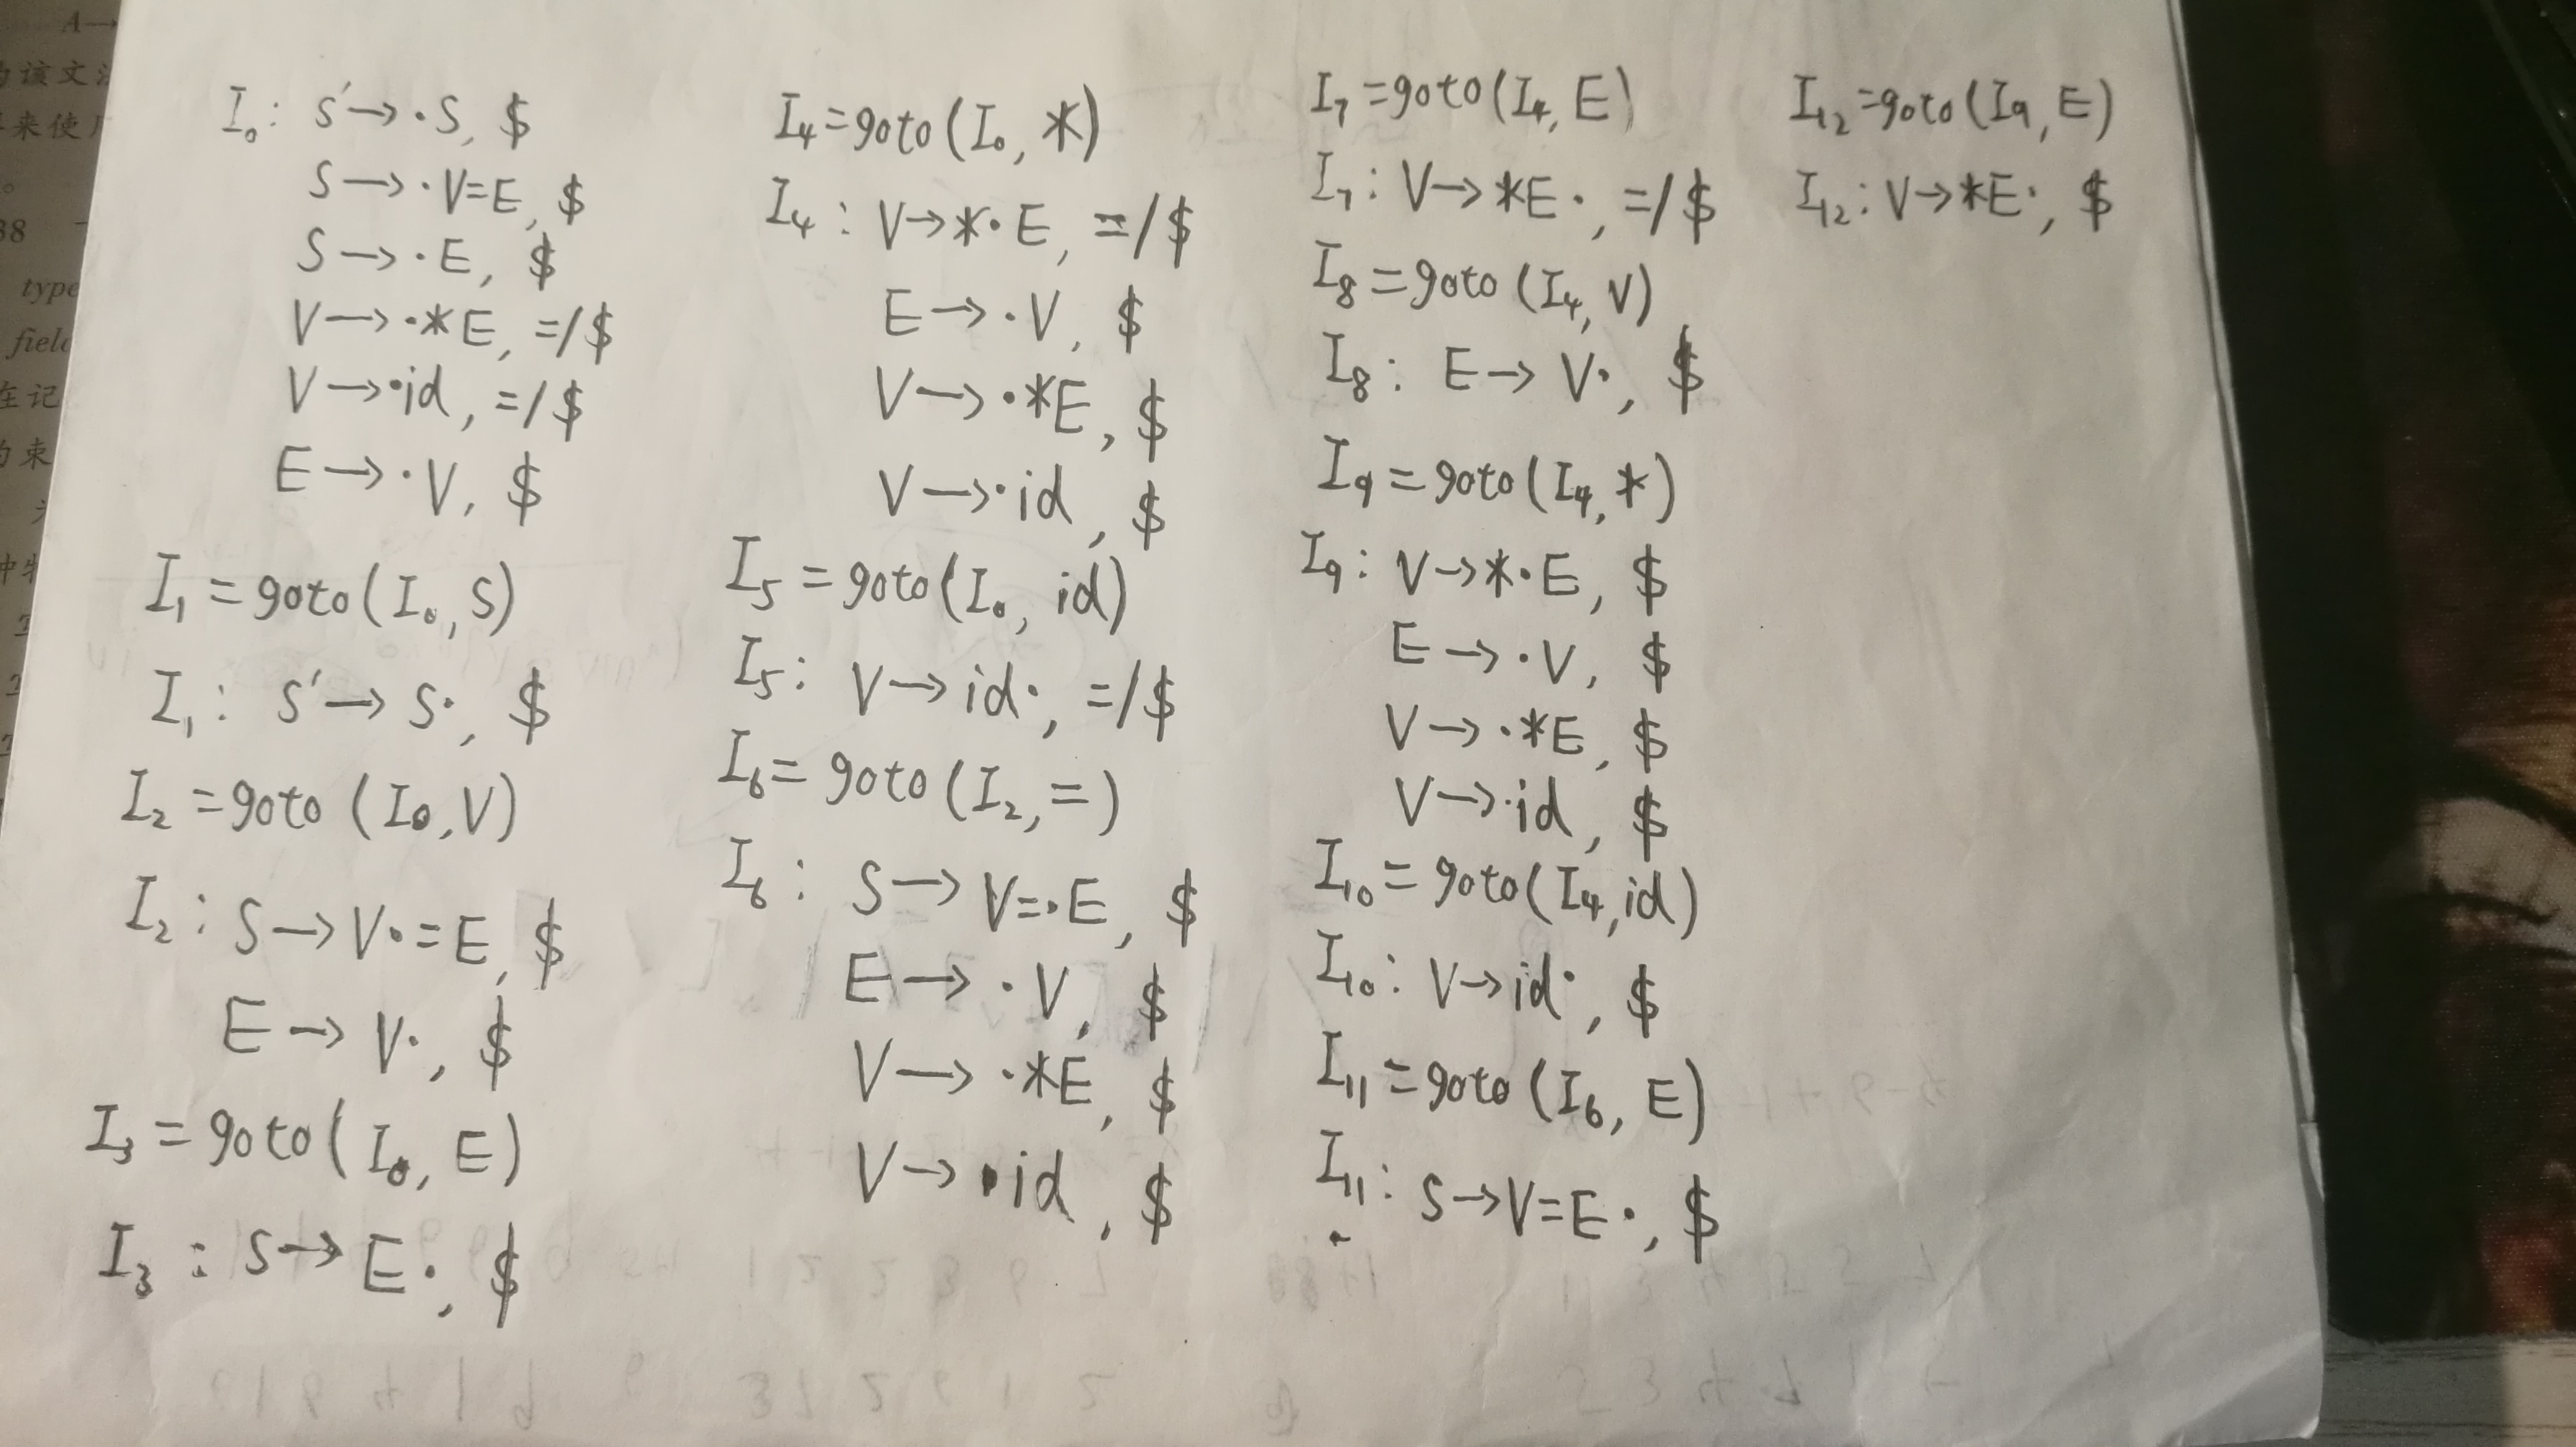 I₀: S'→·S, $
S→·V=E, $
S→·E, $
V→·*E, =/$
V→·id, =/$
E→·V, $
I₁=goto(I₀,S)
I₁: S'→S·, $
I₂=goto(I₀,V)
I₂: S→V·=E, $
E→V·, $
I₃=goto(I₀,E)
I₃: S→E·, $
I₄=goto(I₀,*)
I₄: V→*·E, =/$
E→·V, $
V→·*E, $
V→·id, $
I₅=goto(I₀,id)
I₅: V→id·, =/$
I₆=goto(I₂,=)
I₆: S→V=·E, $
E→·V, $
V→·*E, $
V→·id, $
I₇=goto(I₄,E)
I₇: V→*E·, =/$
I₈=goto(I₄,V)
I₈: E→V·, $
I₉=goto(I₄,*)
I₉: V→*·E, $
E→·V, $
V→·*E, $
V→·id, $
I₁₀=goto(I₄,id)
I₁₀: V→id·, $
I₁₁=goto(I₆,E)
I₁₁: S→V=E·, $
I₁₂=goto(I₉,E)
I₁₂: V→*E·, $
A→
该文
来使
38
type
field
在记
束